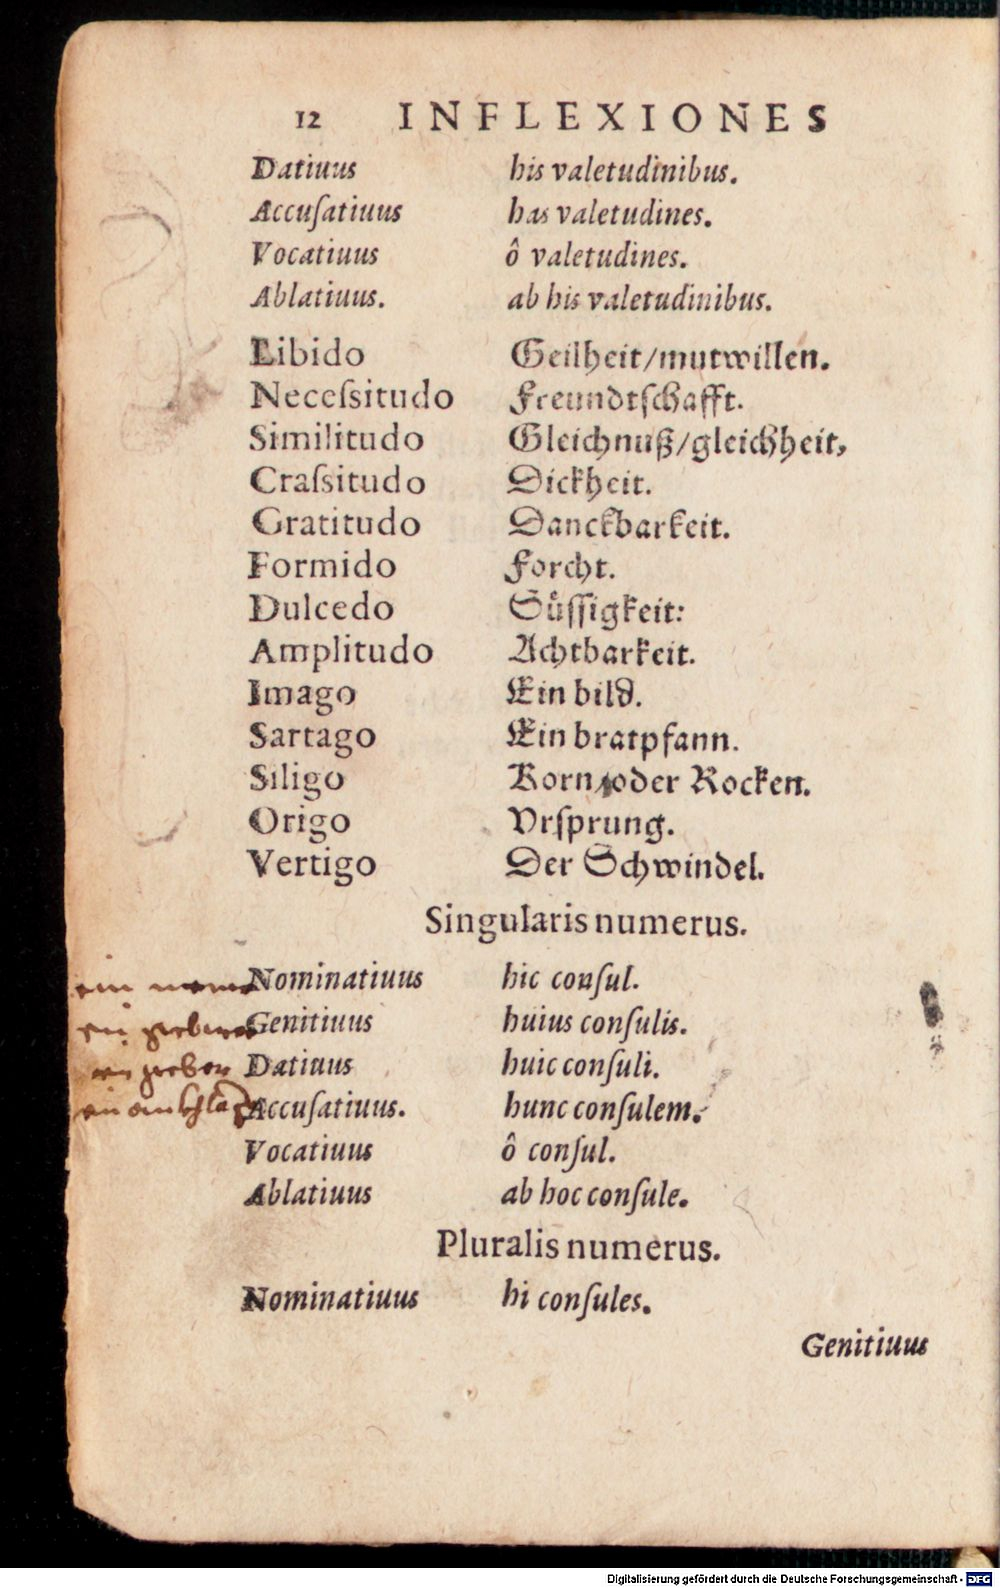 12 INFLEXIONES
Datiuus his valetudinibus.
Accuſatiuus has valetudines.
Vocatiuus ô valetudines.
Ablatiuus. ab his valetudinibus.
Libido Geilheit/mutwillen.
Neceſsitudo Freundtſchafft.
Similitudo Gleichnuß/gleichheit,
Craſsitudo Dickheit.
Gratitudo Danckbarkeit.
Formido Forcht.
Dulcedo Süſſigkeit:
Amplitudo Achtbarkeit.
Imago Ein bild.
Sartago Ein bratpfann.
Siligo Korn/oder Rocken.
Origo Vrſprung.
Vertigo Der Schwindel.
Singularis numerus.
ein Nominatiuus hic conſul.
ein Genitiuus huius conſulis.
ein geber Datiuus huic conſuli.
ein Accuſatiuus. hunc conſulem.
Vocatiuus ô conſul.
Ablatiuus ab hoc conſule.
Pluralis numerus.
Nominatiuus hi conſules.
Genitiuus
Digitalisierung gefördert durch die Deutsche Forschungsgemeinschaft - DFG